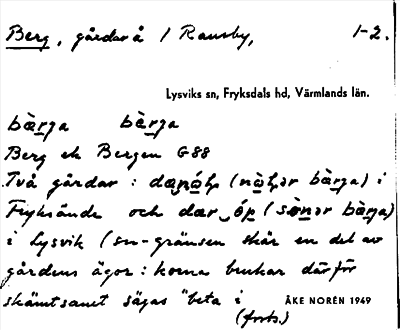 Berg, gårdar å 1 Ransby, 1-2.
Lysviks sn, Fryksdals hd, Värmlands län.
bæ̀rja bæ̀rja
Berg ek Bergen G88
Två gårdar : dær (nò bærja) i
Fryksände och dær óp (sønər bærja)
i Lysvik (sn-gränsen skär en del av
gårdens ägor : korna brukar därför
skämtsamt sägas "beta i ÅKE NORÉN 1949
(forts.)